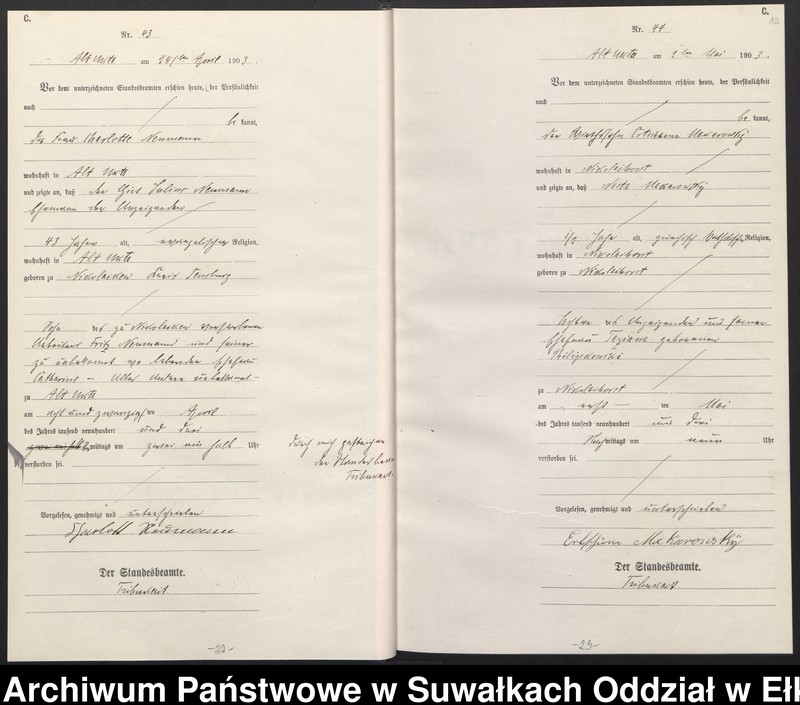 C.
Nr. 43
Alt Ukta am 28ten April 1903.
Vor dem unterzeichneten Standesbeamten erschien heute, der Persönlichkeit
nach
be kannt,
die Frau Charlotte Neumann
wohnhaft in Alt Ukta
und zeigte an, daß der Julius Neumann
Ehemann der Anzeigenden
43 Jahre alt, evangelischer Religion,
wohnhaft in Alt Ukta
geboren zu Nikolaiken Kreis Sensburg
Sohn des zu Nikolaiken verstorbenen
Arbeiters Fritz Neumann und seiner
zu unbekannt wo lebenden Ehefrau
Catharine – unbekannt –
zu Alt Ukta
am acht und zwanzigsten April
des Jahres tausend neunhundert und drei
mittags um zwei ein halb Uhr
verstorben sei.
durch mich gestrichen
der Standesbeamte
Vorgelesen, genehmigt und unterschrieben
Charlott Neumann
Der Standesbeamte.
-22-
C.
Nr. 44
Alt Ukta am 2ten Mai 1903.
Vor dem unterzeichneten Standesbeamten erschien heute, der Persönlichkeit
nach
be kannt,
der Makarowsky
wohnhaft in Nikolaihorst
und zeigte an, daß Makarowsky
1/2 Jahr alt, griechisch Religion,
wohnhaft in Nikolaihorst
geboren zu Nikolaihorst
Tochter des Anzeigenden und seiner
Ehefrau geborenen
zu Nikolaihorst
am erst – ten Mai
des Jahres tausend neunhundert und drei
Nach mittags um neun Uhr
verstorben sei.
Vorgelesen, genehmigt und unterschrieben
Makarowsky
Der Standesbeamte.
-23-
Archiwum Państwowe w Suwałkach Oddział w Ełk